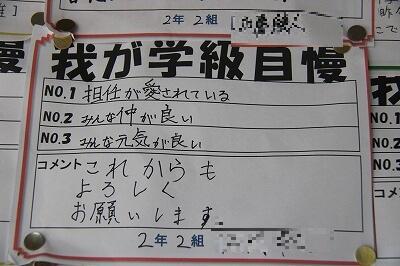 2年2組
我が学級自慢
NO.1 担任が愛されている
NO.2 みんな仲が良い
NO.3 みんな元気が良い
コメント これからも
よろしく
お願いします
2年2組